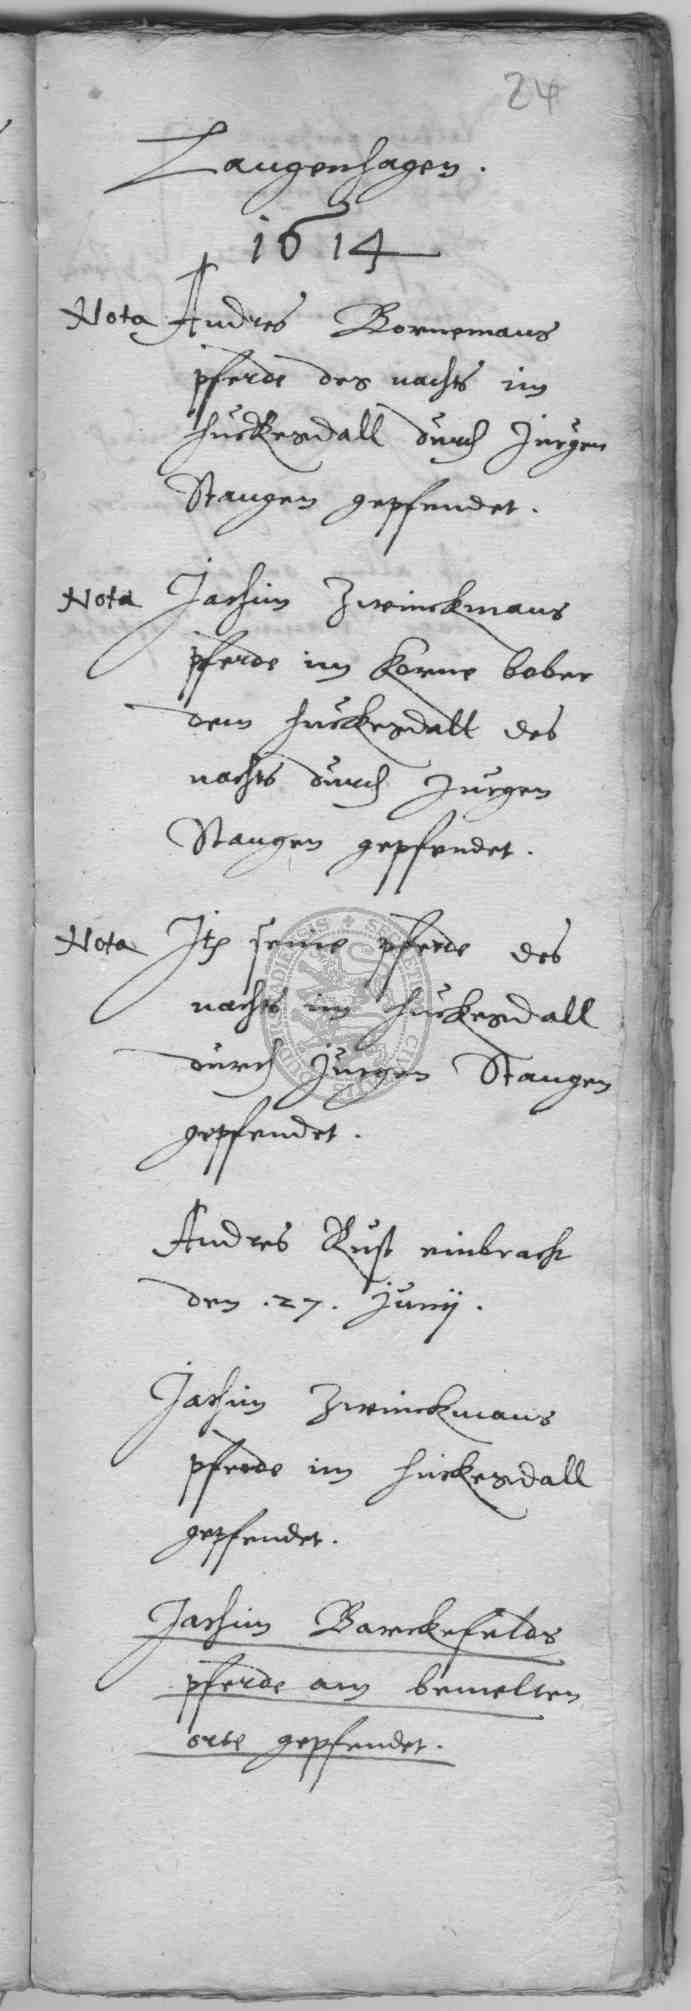 24
Langenhagen.
1614
Nota Andres Bornemans
pferde des nachts im
huckesdall durch Jurgen
Stangen gepfendet.
Nota Jachim Zwinckmans
pferde im korne bober
dem huckesdall des
nachts durch Jurgen
Stangen gepfendet.
Nota Jtē seine pferde des
nachts im huckesdall
durch Jurgen Stangen
gepfendet.
Andres Rust einbracht
den .27. Junij.
Jachim Zwinckmans
pferde im huckesdall
gepfendet.
Jachim Barckefelds
pferde am bemelten
orte gepfendet.